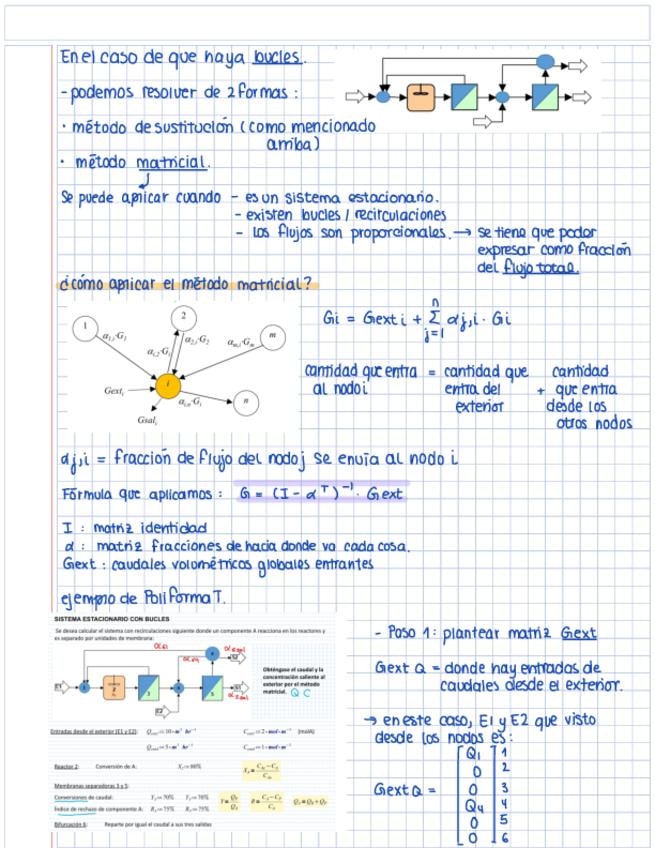 En el caso de que haya bucles.
- podemos resolver de 2 formas :
· método de sustitución (como mencionado
arriba)
· método matricial.
Se puede aplicar cuando - es un sistema estacionario.
- existen bucles / recirculaciones
- los flujos son proporcionales. → se tiene que poder
expresar como fracción
del flujo total.
¿cómo aplicar el método matricial?
1
2
m
n
i
α1,i·G1
αi,2·Gi
α2,i·G2
αm,i·Gm
αi,n·Gi
Gexti
Gsali
Gi = Gext i + Σ αj,i · Gi
n
j=1
cantidad que entra = cantidad que + cantidad
al nodo i entra del que entra
exterior desde los
otros nodos
αj,i = fracción de flujo del nodo j se envía al nodo i
Fórmula que aplicamos : G = (I - α^T)^-1 · Gext
I : matriz identidad
α : matriz fracciones de hacia donde va cada cosa.
Gext : caudales volumétricos globales entrantes
ejemplo de PoliformaT.
SISTEMA ESTACIONARIO CON BUCLES
Se desea calcular el sistema con recirculaciones siguiente donde un componente A reacciona en los reactores y
es separado por unidades de membrana:
E1
E2
S1
Obténgase el caudal y la
concentración saliente al
exterior por el método
matricial. Q C
Entradas desde el exterior (E1 y E2):
(molA)
Reactor 2: Conversión de A:
Membranas separadoras 3 y 5:
Conversiones de caudal:
Índice de rechazo de componente A:
Bifurcación 6: Reparte por igual el caudal a sus tres salidas
- Paso 1: plantear matriz Gext
Gext Q = donde hay entradas de
caudales desde el exterior.
→ en este caso, E1 y E2 que visto
desde los nodos es:
Gext Q =
Q1 1
0 2
0 3
Q4 4
0 5
0 6